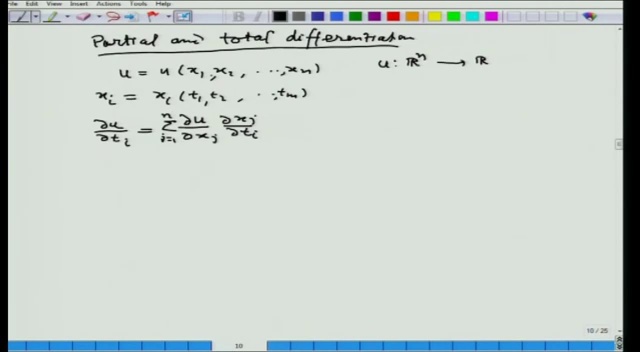 File Edit View Insert Actions Tools Help
Partial and total differentiation
u = u(x₁, x₂, ..., xₙ)    u: ℝⁿ → ℝ
xᵢ = xᵢ(t₁, t₂, ..., tₘ)
∂u/∂tᵢ = Σⁿⱼ₌₁ ∂u/∂xⱼ ∂xⱼ/∂tᵢ
10 / 25
10